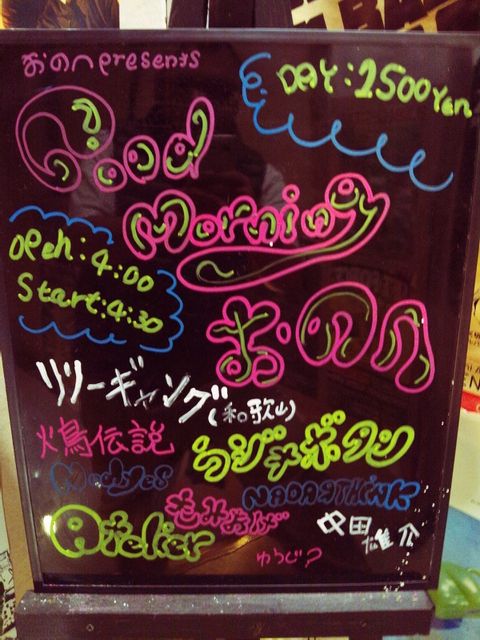 おのへpresents
DAY:2500Yen
Good
Morning
おのへ
open:4:00
Start:4:30
リリーギャング(和歌山)
火鳥伝説
ラジデボワン
Madyes
NADA9THINK
Atelier
中田雄介
ゆうじ?